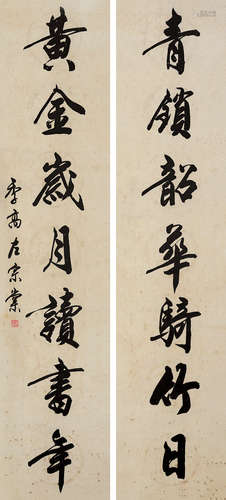 青鎖韶華騎竹日
黃金歲月讀書年
季高左宗棠